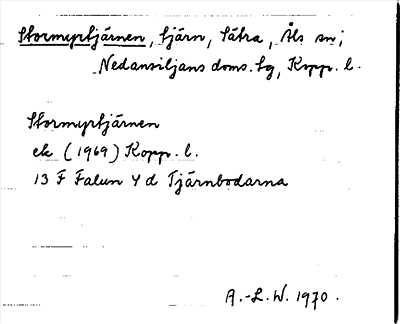 Stormyrtjärnen, tjärn, Sätra, Åls sn;
Nedansiljans doms.tg, Kopp. l.
Stormyrtjärnen
ek (1969) Kopp. l.
13 F Falun 4 d Tjärnbodarna
A.-L.W. 1970.